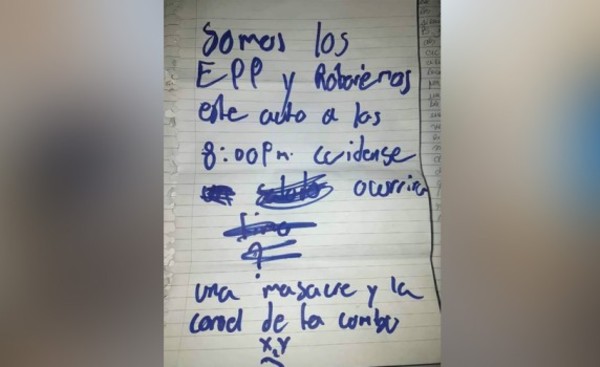 Somos los
EPP y Robaremos
este auto a las
8:00pm. cuidense
ocurrira
una masacre y la
de la
X,Y